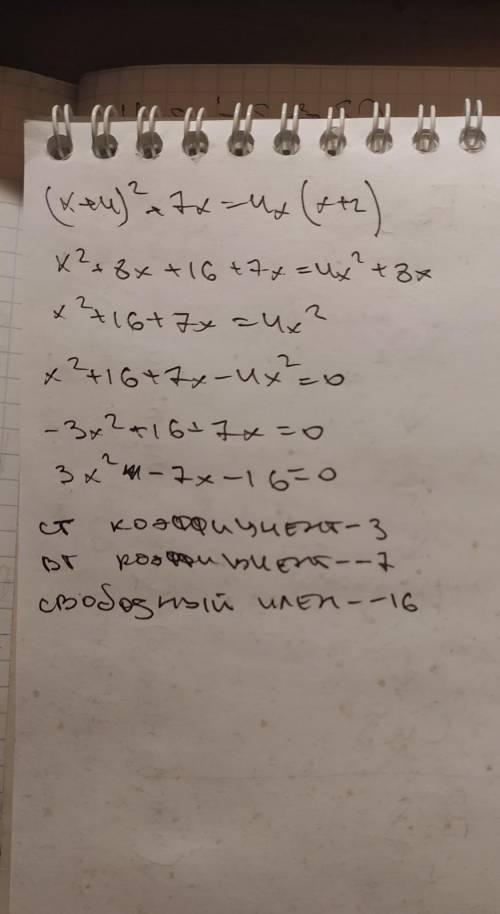 (x+4)² + 7x = 4x(x+2)
x² + 8x + 16 + 7x = 4x² + 8x
x² + 16 + 7x = 4x²
x² + 16 + 7x - 4x² = 0
-3x² + 16 + 7x = 0
3x² - 7x - 16 = 0
ст коэффициент - 3
вт коэффициент - -7
свободный член - -16